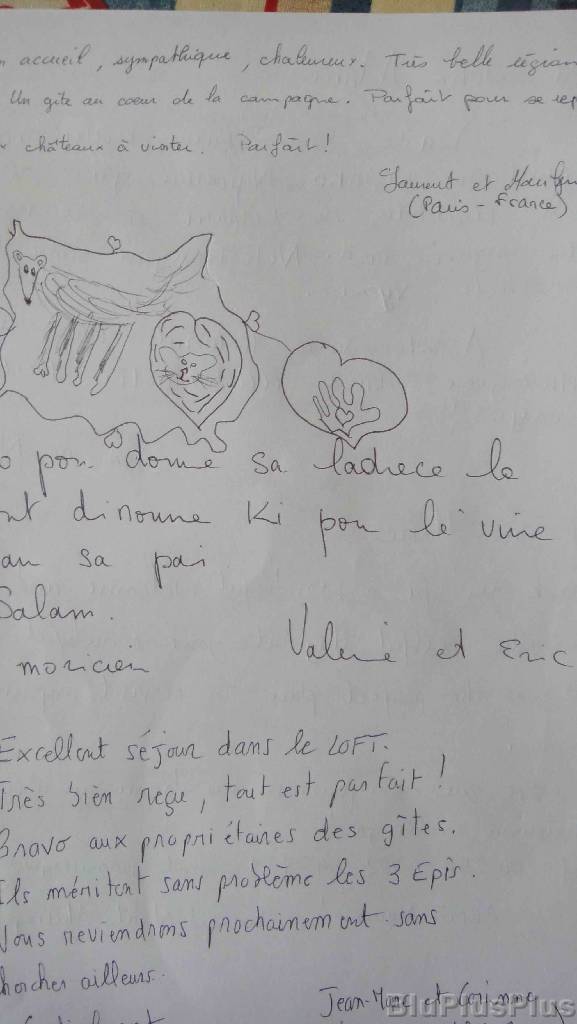 accueil, sympathique, chaleureux. Très belle région
Un gîte au coeur de la campagne. Parfait pour se
châteaux à visiter. Parfait!
Laurent et
(Paris - France)
pou donne sa ladrece le
dinoune ki pou le vine
sa pai
Salam.
Valerie et Eric
moricien
Excellent séjour dans le LOFT.
Très bien reçu, tout est parfait!
Bravo aux propriétaires des gîtes.
Ils méritent sans problème les 3 Epis.
Nous reviendrons prochainement sans
chercher ailleurs.
Jean-Marc et Corinne
BluPlusPlus